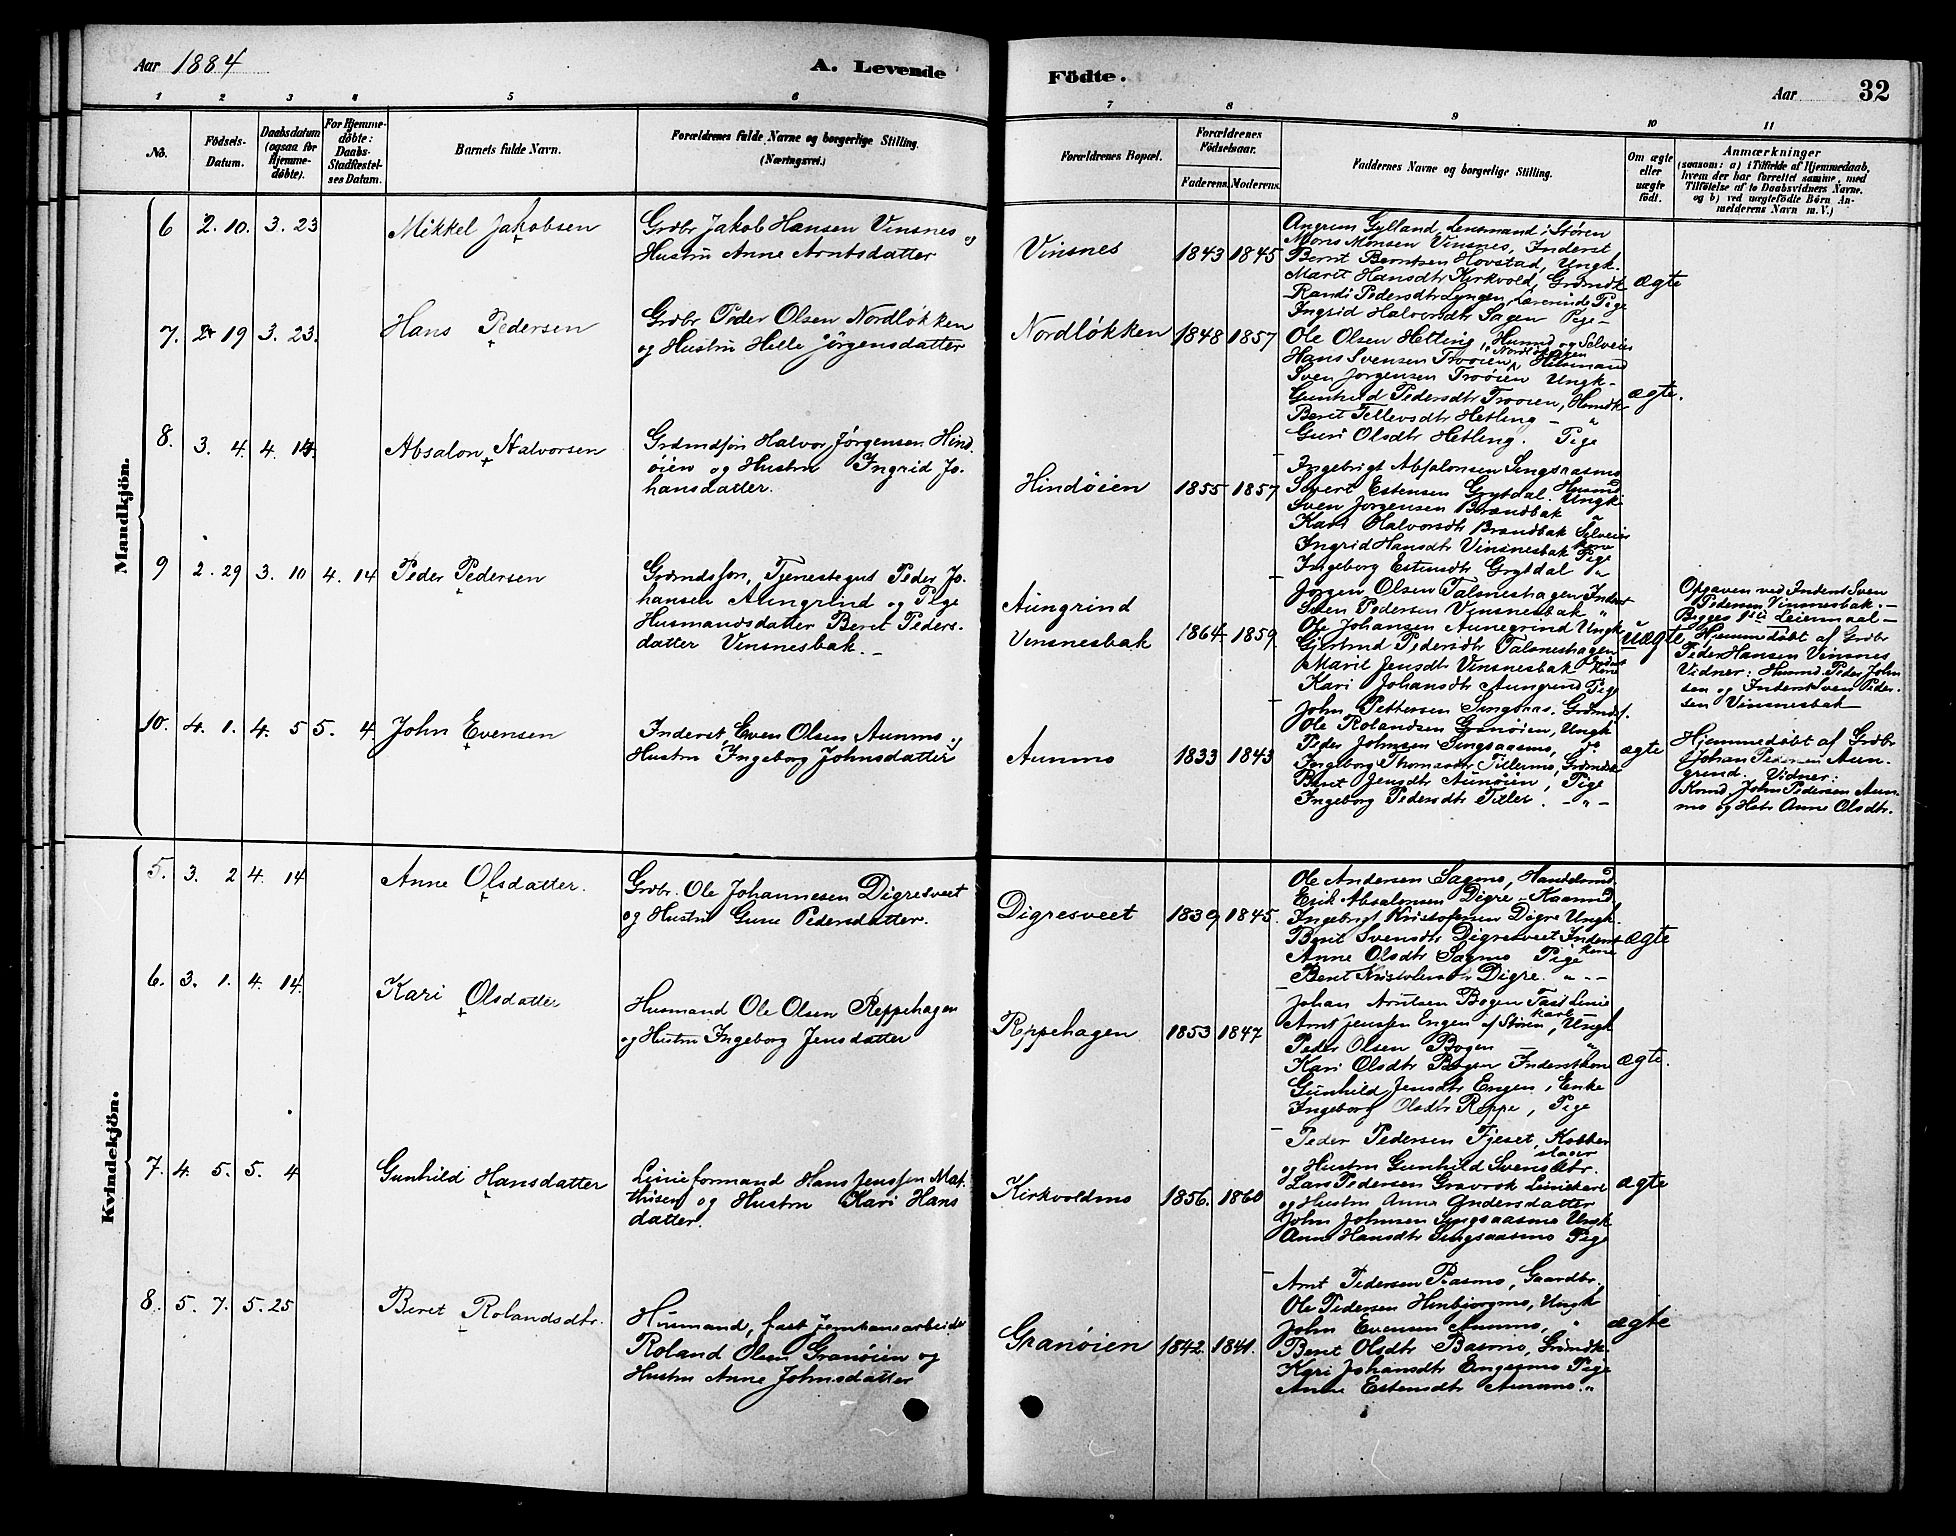 Aar 1884
A. Levende
1 2 3 4 5 6
No.
Födsels-
Datum.
Daabsdatum
(ogsaa for
Hjemme-
døbte).
For Hjemme-
døbte:
Daabs-
Stadfestel-
ses Datum.
Barnets fulde Navn.
Forældrenes fulde Navne og borgerlige Stilling.
(Næringsvei.)
Mandkjön.
6 2. 10. 3. 23 Mikkel Jakobsen
Grdbr Jakob Hansen Vinsnes og
Hustru Anne Arntsdatter
7. 2 19 3. 23. Hans Pedersen
Grdbr Peder Olsen Nordløkken
og Hustru Helle Jørgensdatter
8. 3. 4. 4. 14. Absalon Halvorsen
Grdmdsøn Halvor Jørgensen Hind
øien og Hustru Ingrid Jo-
hansdatter.
9 2. 29 3. 10 4. 14 Peder Pedersen
Grdmdsøn, Tjenestegut Peder Jo-
hansen Aungrind og Pige
Husmandsdatter Beret Peders-
datter Vinsnesbak. –
10. 4. 1. 4. 5 5. 4 John Evensen
Inderst Even Olsen Aunmo og
Hustru Ingeborg Johnsdatter
Kvindekjön.
5. 3. 2 4. 14 Anne Olsdatter.
Grdbr. Ole Johannesen Digresveet
og Hustru Gune Pedersdatter.
6. 3. 1. 4. 14. Kari Olsdatter
Husmand Ole Olsen Reppehagen
og Hustru Ingeborg Jensdatter
7. 4. 5. 5. 4 Gunhild Hansdatter
Linieformand Hans Jenssen Mat-
thisen og Hustru Kari Hans
datter.
8. 5. 7. 5. 25 Beret Rolandsdtr.
Husmand, fast Jernbanearbeider
Roland Olsen Granøien og
Hustru Anne Johnsdatter
Födte.
Aar 32
7 8 9 10 11
Forældrenes Bopæl.
Forældrenes
Födselsaar.
Faderens. Moderens.
Faddernes Navne og borgerlige Stilling.
Om ægte
eller
uægte
født.
Anmærkninger
(saasom: a) i Tilfælde af Hjemmedaab,
hvem der har forrettet samme, med
Tilføielse af to Daabsvidners Navne.
og b) ved uægtefödte Börn An-
melderens Navn m. V.)
Vinsnes 1843 1845 ægte
Angrim Gylland, Lensmand i Støren
Mons Monsen Vinsnes, Inderst
Bernt Berntsen Hovstad, Ungk.
Marit Hansdtr Kirkvold, Grdmdt
Randi Pedersdtr Lyngen, Lærerinde Pige
Ingrid Halvorsdtr Sagen Pige –
Nordløkken 1848 1857 ægte.
Ole Olsen Hetling, Husmd og Selveier
Hans Svensen Troøien, Husmand
Nordløkken
Sven Jørgensen Troøien Ungk –
Gunhild Pedersdtr Troøien, Husmdk
Beret Tellevsdtr Hetling – "
Guri Olsdtr Hetling. Pige
Hindøien 1855 1857
Ingebrigt Absalonsen Singsaasmo
Husmd
Sivert Estensen Grytdal. Ungk.
Sven Jørgensen Brandbak "
Kari Halvorsdtr Brandbak Selveier
kone
Ingrid Hansdtr Vinsnesbak Pige
Ingeborg Estensdtr Grytdal "
Aungrind
Vinsnesbak 1864 1859. uægte
Jørgen Olsen Talsneshagen Inderst
Sven Pedersen Vinsnesbak "
Ole Johansen Aunegrind Ungk
Gjertrud Pedersdtr Talsneshagen
Marit Jensdtr Vinsnesbak Inderst
kone
Kari Johansdtr Aungrind Pige
Opgaven ved Inderst Sven
Pedersen Vinsnesbak. –
Begges 1ste Leiermaal –
Hjemmedøbt af Grdbr
Peder Hansen Vinsnes
Vidner: Husmd. Peder John
sen og Inderst Sven Peder-
sen Vinsnesbak –
Aunmo 1833 1843 ægte
John Pettersen Singsaas. Grdmds.
Ole Rolandsen Granøien, Ungk
Peder Johnsen Singsaasmo, do
Ingeborg Thomasdtr Tillermo, Grdmdk
Beret Jensdtr Aunøien, Pige
Ingeborg Pedersdtr Tiller. – " –
Hjemmedøbt af Grdbr
Johan Pedersen Aun-
grind. Vidner:
Kaard. John Pedersen Aun-
mo og Hstr Anne Olsdtr.
Digresveet 1839 1845. ægte
Ole Andersen Sagmo, Handelsmd
Erik Absalonsen Digre – Kaarmd
Ingebrigt Kristofersen Digre Ungk.
Berit Svensdtr Digresveet Inderst
kone
Anne Olsdtr Sagmo Pige
Beret Kristofersdtr Digre. " –
Reppehagen 1853 1847 ægte.
Johan Arntsen Bogen Fast Linie
karl –
Arnt Jenssen Engen af Støren, Ungk
Peder Olsen Bogen – "
Kari Olsdtr Bogen Inderstkone
Gunhild Jensdtr Engen, Enke
Ingeborg Olsdtr Reppe, Pige
Kirkvoldmo 1856. 1860 ægte
Peder Pedersen Fjeset, Kobber
slager
og Hustru Gunhild Svensdtr.
Lars Pedersen Gravrok Liniekarl
og Hustru Anna Andersdatter
John Johnsen Singsaasmo Ungk
Anne Hansdtr Singsaasmo Pige
Granøien 1842. 1841. ægte
Arnt Pedersen Rasmo, Gaardbr.
Ole Pedersen Hinbjorgmo, Ungk
John Evensen Aunmo, "
Beret Olsdtr Basmo, Grdmdk.
Kari Johansdtr Engesmo Pige
Anne Estensdtr Aunmo. "